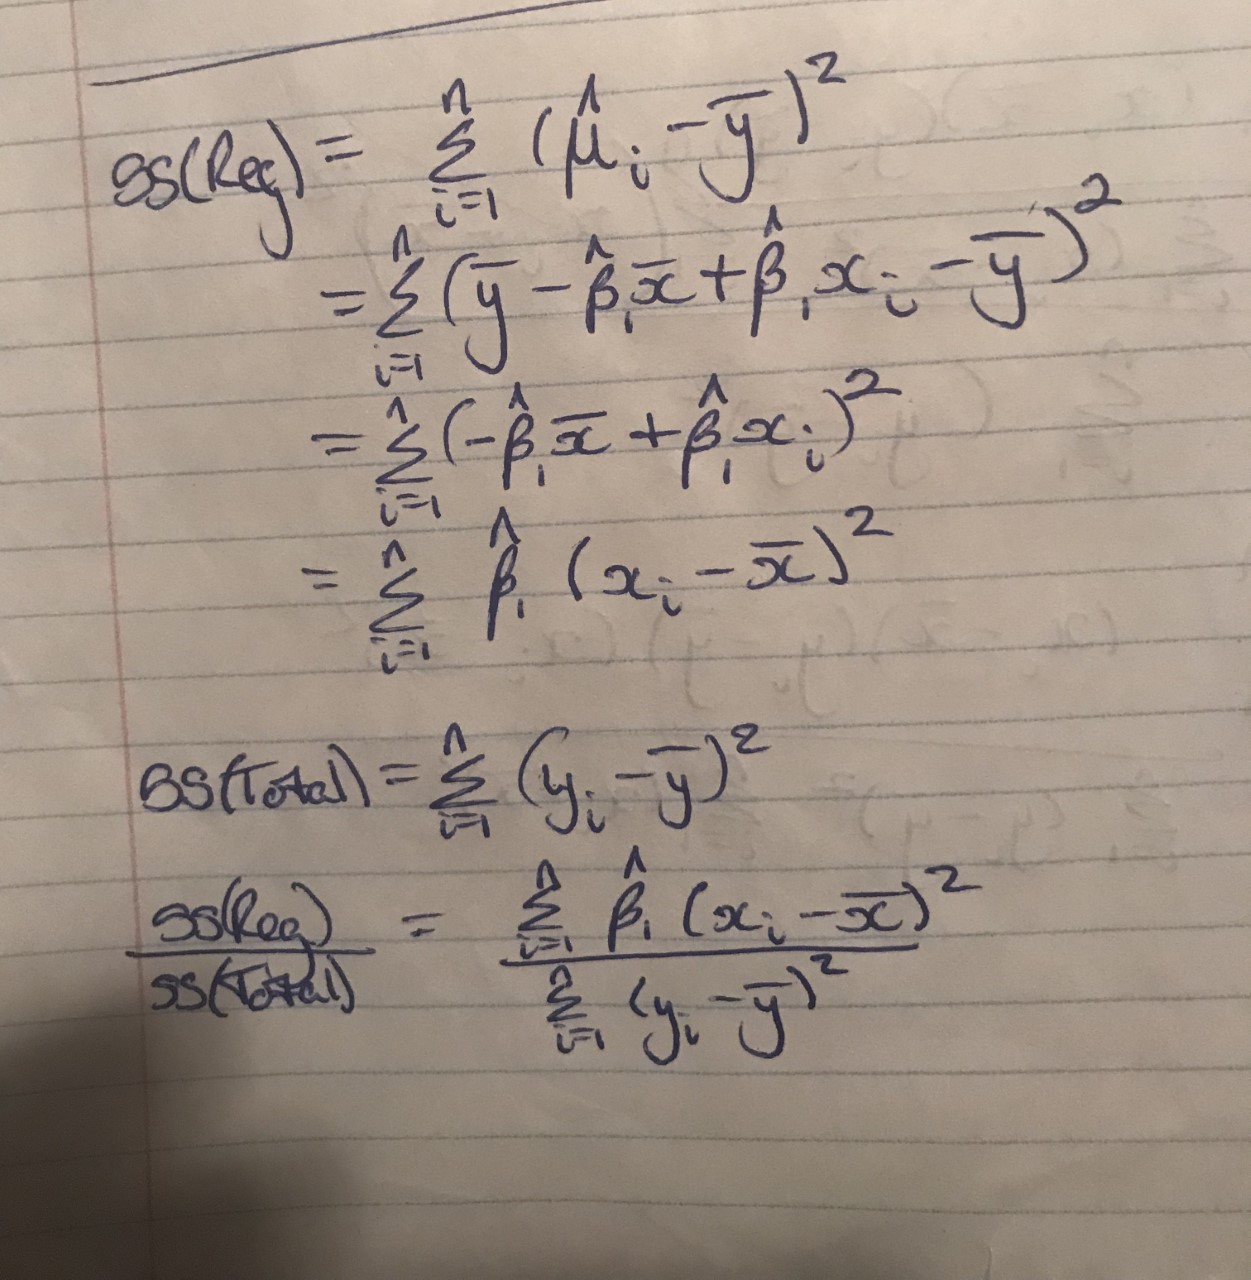 SS(Reg) = \sum_{i=1}^{n} (\hat{\mu}_i - \bar{y})^2
= \sum_{i=1}^{n} (\bar{y} - \hat{\beta}_1 \bar{x} + \hat{\beta}_1 x_i - \bar{y})^2
= \sum_{i=1}^{n} (-\hat{\beta}_1 \bar{x} + \hat{\beta}_1 x_i)^2
= \sum_{i=1}^{n} \hat{\beta}_1 (x_i - \bar{x})^2
SS(Total) = \sum_{i=1}^{n} (y_i - \bar{y})^2
\frac{SS(Reg)}{SS(Total)} = \frac{\sum_{i=1}^{n} \hat{\beta}_1 (x_i - \bar{x})^2}{\sum_{i=1}^{n} (y_i - \bar{y})^2}